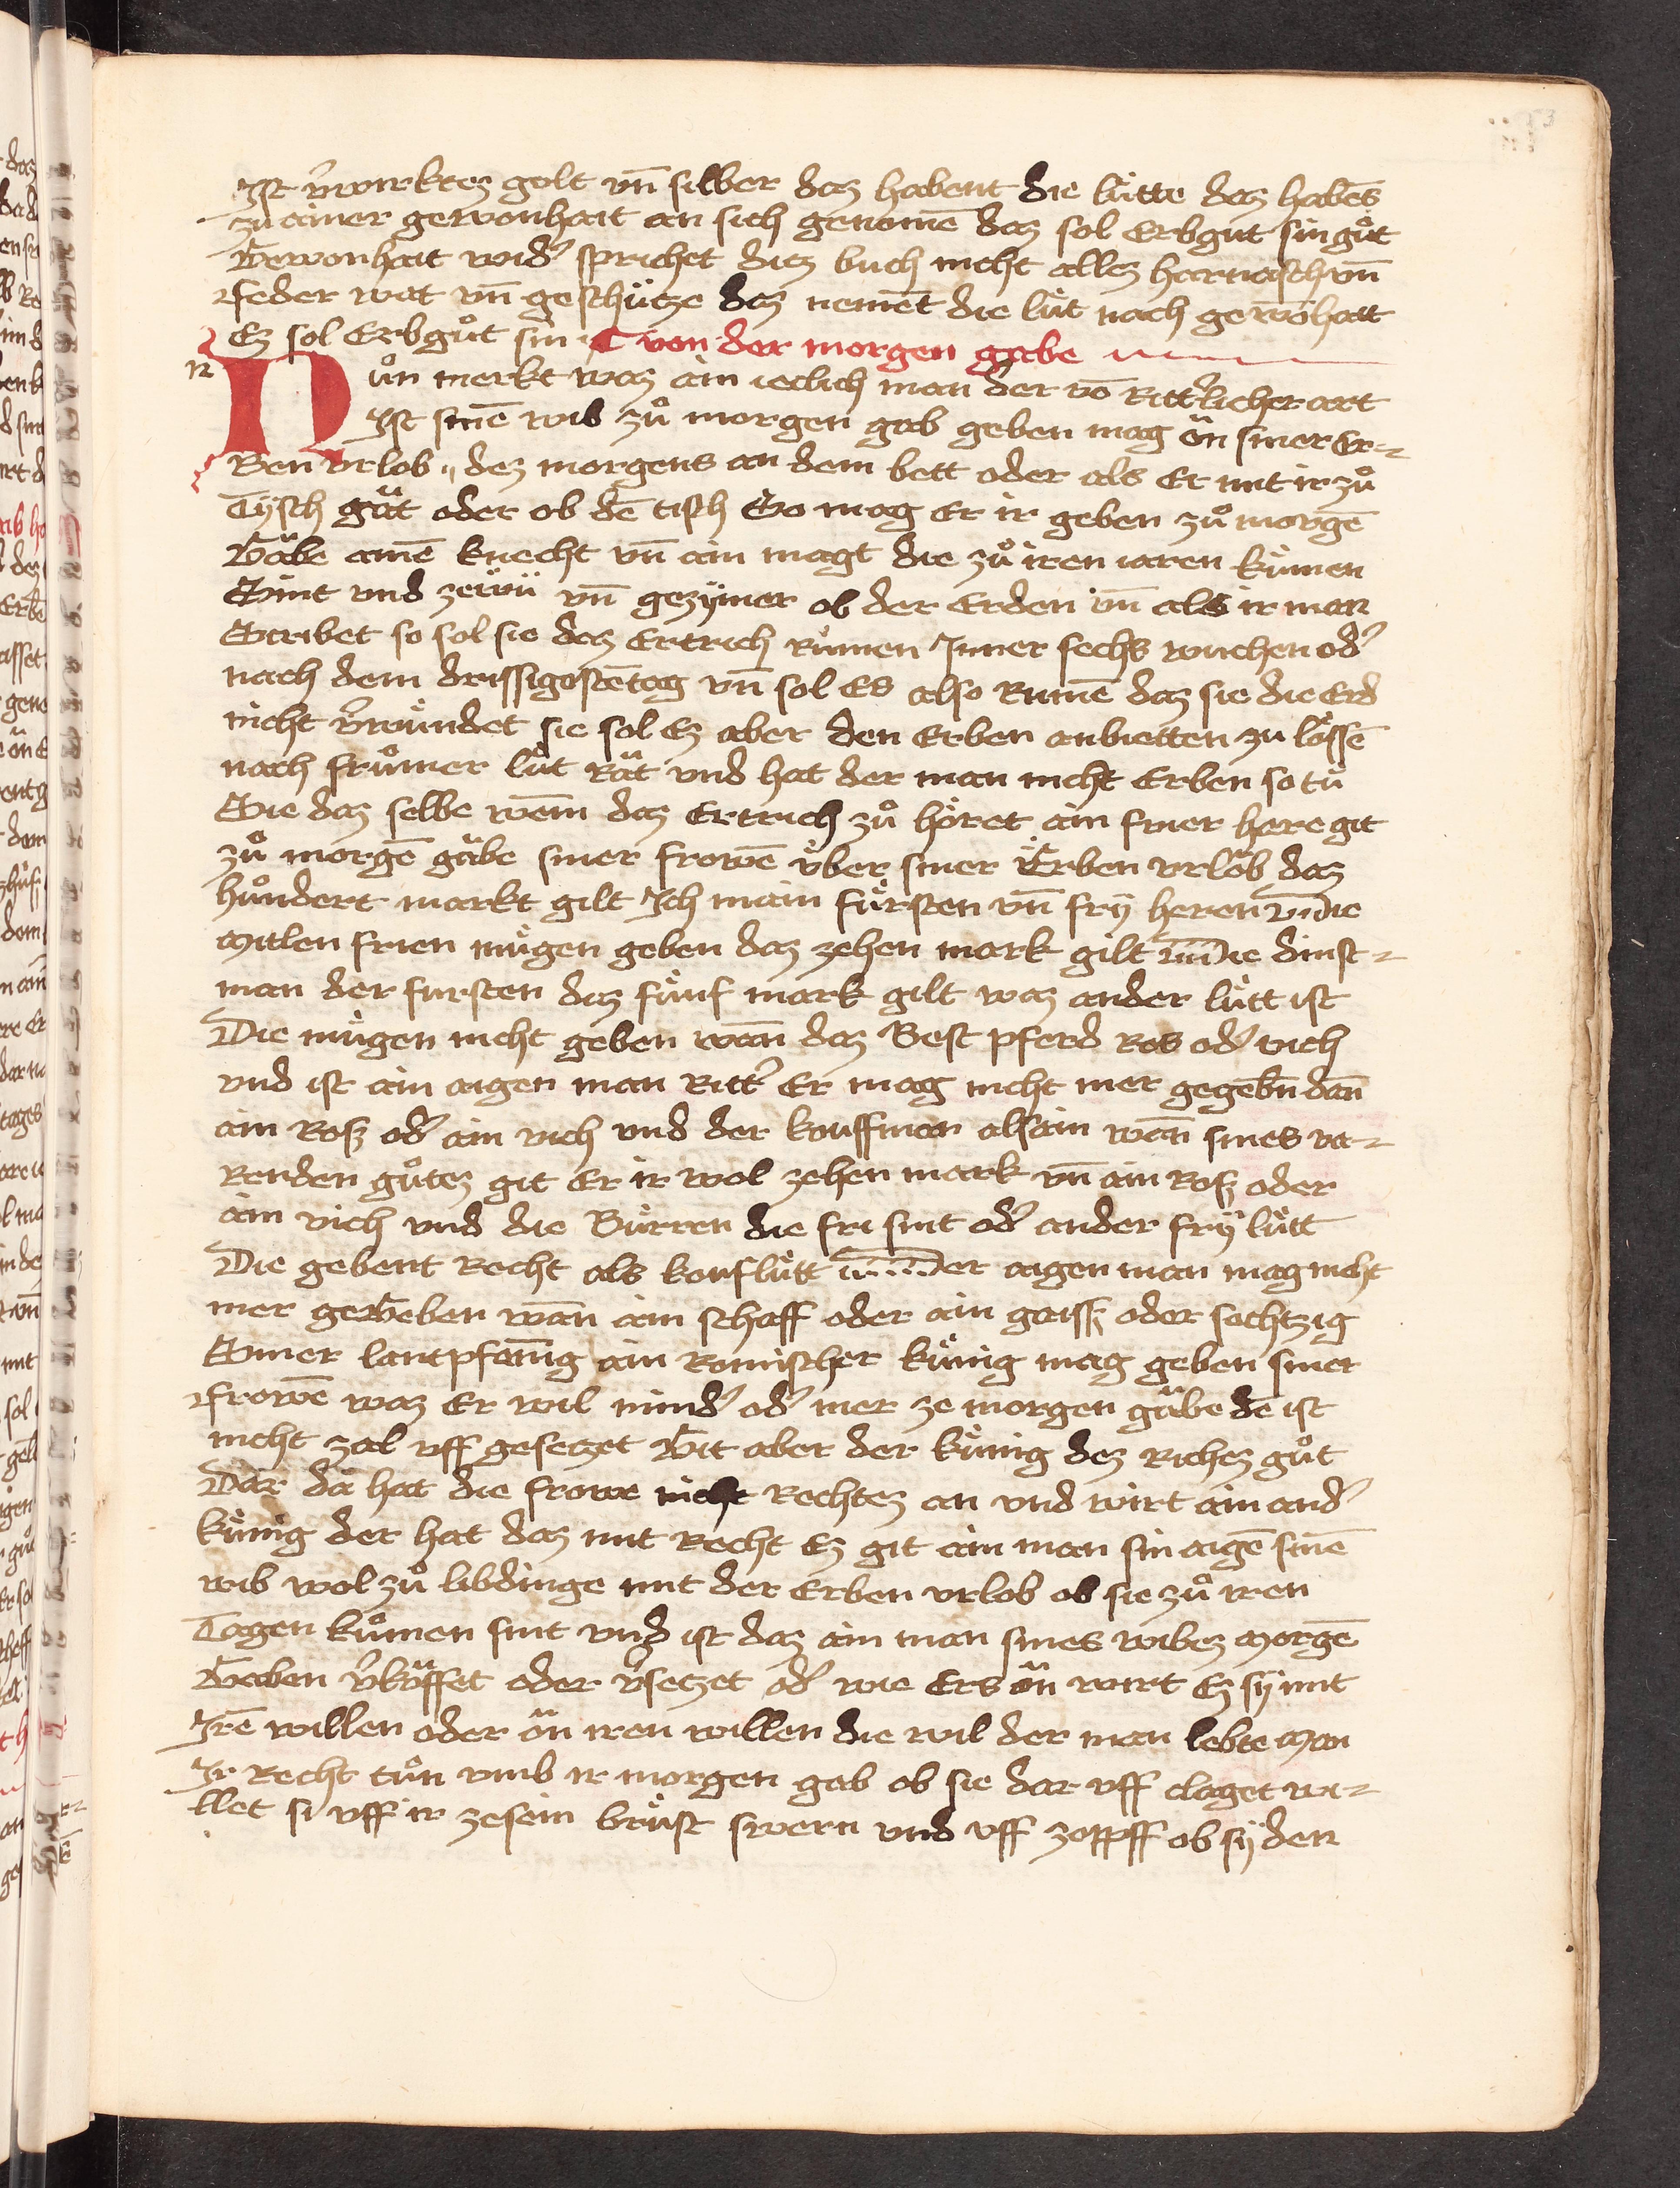 Ist v̾wurktez golt vn̄ silber daz habent die lütte daz habēs
zu ainer gewonhait an sich genomē daz sol Erbgut sin gůt
Gewonhait wid̾ sprichet diez buch nicht allez harnasch vn̄
feder wat vn̄ geschütze daz nemēt die lüt nach gewōhait
Ez sol Erbgůt sin von der morgen gabe
Nůn merkt waz ain ieclich man der vō Ritt̾licher art
Ist sinē wib zů morgen gab geben mag ön siner Er-
Ben vrlob dez morgens an dem bett oder als Er mit ir zů
Tysch gät oder ob dē tisch So mag Er ir geben zů morgē
Gäbe ainē knecht vn̄ ain magt die zů iren iaren kůmen
Sint vnd zewn vn̄ gezymer ob der Erden vn̄ als ir man
Stribet so sol sie daz Ertrich Rumen Inner sechs wuchen od̾
nach dem drissigostē tag vn̄ sol Es also Rumē daz sie die Erd
nicht v̾wündet sie sol Ez aber den Erben anbietten zu lössē
nach frümer lüt Rät vnd hat der man nicht Erben so tů
Sie daz selbe wem daz Ertrich zů höret ain frier here git
zů morgē gäbe siner frowē über siner Erben vrlöb daz
hundert markt gilt Ich main fürsten vn̄ fry heren die
mitlen frien mügen geben daz zehen mark gilt die dinst-
man der fursten daz fünf mark gilt waz ander lütt ist
Die mügen nicht geben wān daz Best pferd Ros od̾ vich
vnd ist ain aigen man Ritt̾ Er mag nicht mer gegebn̄ dan̄
ain Rosz od̾ ain vich vnd der kouffman alsain wān sines va-
Renden gůtez git Er ir wol zehen mark vn̄ ain Rosz oder
ain vich vnd die Bürren die fri sint od̾ ander fry lütt
Die gebent Recht als kouflütt der aigen man mag nicht
mer gegeben wān ain schaff oder ain gaisz oder sechtzig
Siner lantpfenīg ain Romischer künig mag geben siner
frowē waz Er wil mind̾ od̾ mer ze morgen gäbe dē ist
nicht zal vff gesetzet Git aber der künig dez Richez gůt
Dar dä hat die frowe nicht Rechtez an vnd wirt ain and̾
künig der hat daz mit Recht Ez git ain man sin aigē sinē
wib wol zů libdinge mit der Erben vrlob ob sie zů iren
Tagen kůmen sint vnd ist daz ain man sines wibez morgē
Gaben v̾köffet oder v̾setzet od̾ wie Ers ön wirt Ez sy mit
Irē willen oder ön iren willen die wil der man lebte man
Ir Recht tůn vmb ir morgen gab ob sie dar vff claget wi-
llet si vff ir zesein brüst swern vnd vff zopff ob sy den